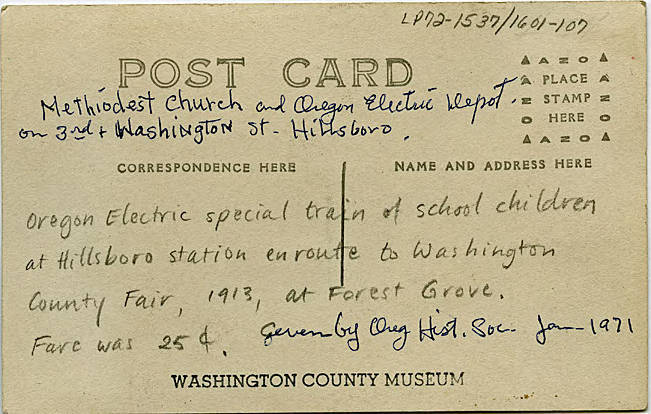 LP72-1537/1601-107
POST CARD
AZO
PLACE
STAMP
HERE
AZO
Methiodest Church and Oregon Electric Depot.
on 3rd + Washington St- Hillsboro.
CORRESPONDENCE HERE
NAME AND ADDRESS HERE
Oregon Electric special train of school children
at Hillsboro station enroute to Washington
County Fair, 1913, at Forest Grove.
Fare was 25 ¢.
Geven by Oreg Hist. Soc. Jan- 1971
WASHINGTON COUNTY MUSEUM